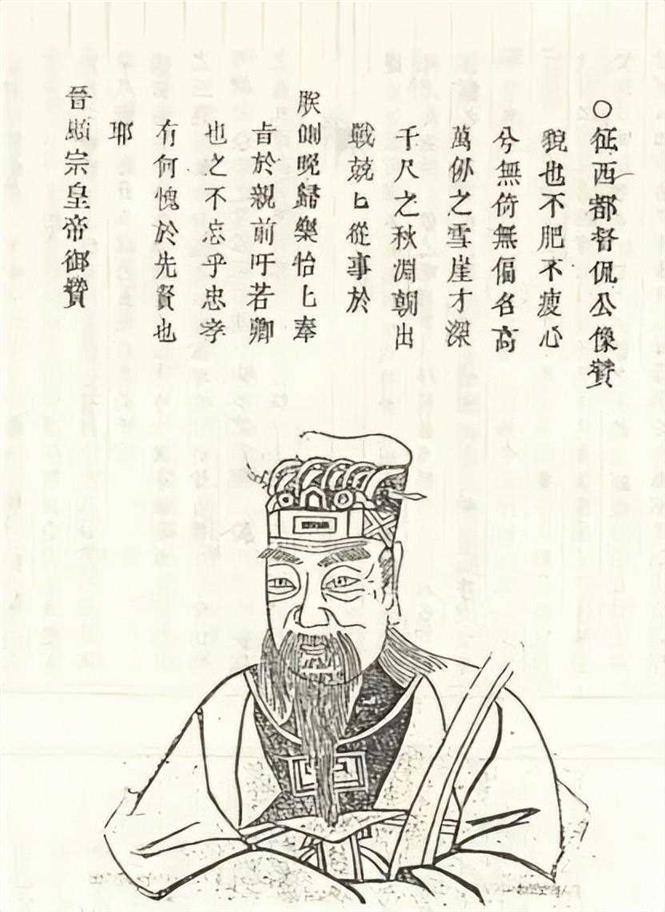 ○征西都督侃公像贊
猊也不肥不瘦心
兮無倚無偏名高
萬仞之雪崖才深
千尺之秋淵朝出
戰兢匕從事於
朕側晚歸樂怡匕奉
旨於親前吁若卿
也之不忘乎忠孝
有何愧於先賢也
耶
晉顯宗皇帝御贊